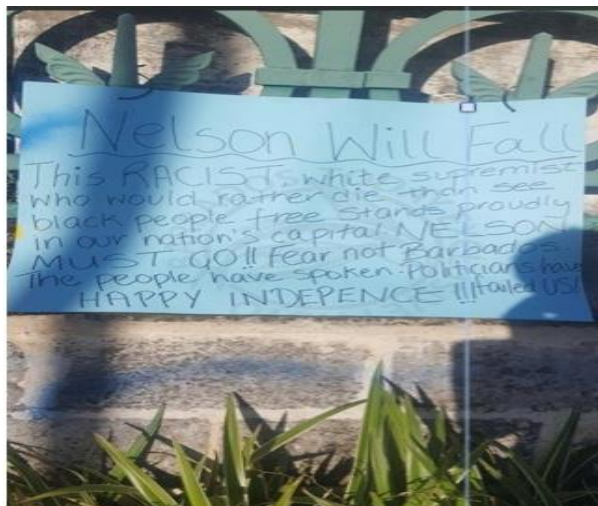 Nelson Will Fall
This RACIST, white supremist
who would rather die than see
black people free stands proudly
in our nation's capital NELSON
MUST GO!! Fear not Barbados.
The people have spoken. Politicians have
failed US!
HAPPY INDEPENCE!!!